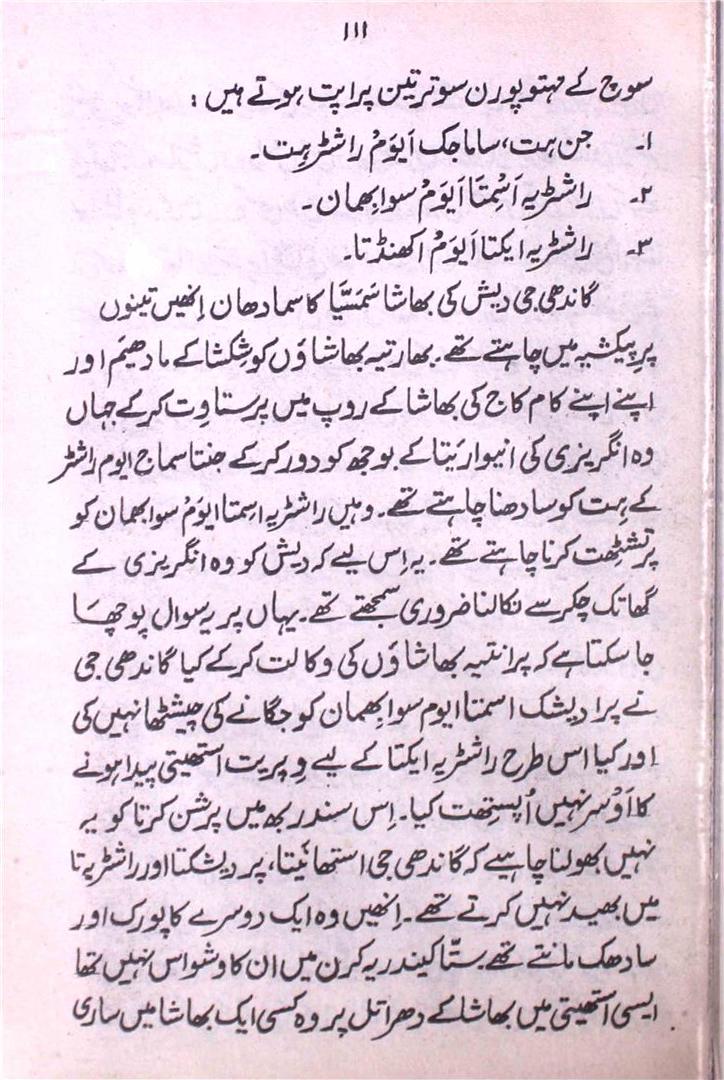 ۱۱۱
سوچ کے مہتوپورن سوتر تین پراپت ہوتے ہیں :
۱۔ جن ہت، ساماجک اَیوَمْ راشٹر ہت۔
۲۔ راشٹریہ اَسْمِتَا اَیوَمْ سوابھمان۔
۳۔ راشٹریہ ایکتا اَیوَمْ اکھنڈتا۔
گاندھی جی دیش کی بھاشا سَمَسیَّا کا سمادھان اِنھیں تینوں
پرِپیکشیہ میں چاہتے تھے۔ بھارتیہ بھاشاؤں کو شِکشا کے مادھیَم اور
اپنے اپنے کام کاج کی بھاشا کے روپ میں پرستاوِت کرکے جہاں
وہ انگریزی کی انیواریَتا کے بوجھ کو دور کرکے جنتا سماج ایوم راشٹر
کے ہِت کو سادھنا چاہتے تھے۔ وہیں راشٹریہ اسمتا ایوَمْ سوابھمان کو
پرتِشٹھِت کرنا چاہتے تھے۔ یہ اِس لیے کہ دیش کو وہ انگریزی کے
گھاتک چکر سے نکالنا ضروری سمجھتے تھے۔ یہاں پر یہ سوال پوچھا
جا سکتا ہے کہ پرانتیہ بھاشاؤں کی وکالت کرکے کیا گاندھی جی
نے پرادیشک اسمتا ایوم سوابھمان کو جگانے کی چیشٹھا نہیں کی
اور کیا اس طرح راشٹریہ ایکتا کے لیے وِپریت استھیتی پیدا ہونے
کا اَوْسر نہیں اُپستِھت کیا۔ اِس سندربھ میں پرشن کرتا کو یہ
نہیں بھولنا چاہیے کہ گاندھی جی استھانیَتا، پردیشکتا اور راشٹریہ تا
میں بھید نہیں کرتے تھے۔ اِنھیں وہ ایک دوسرے کا پورک اور
سادھک مانتے تھے۔ ستّا کیندریہ کرن میں ان کا وشواس نہیں تھا
ایسی استھیتی میں بھاشا کے دھراتل پر وہ کسی ایک بھاشا میں ساری